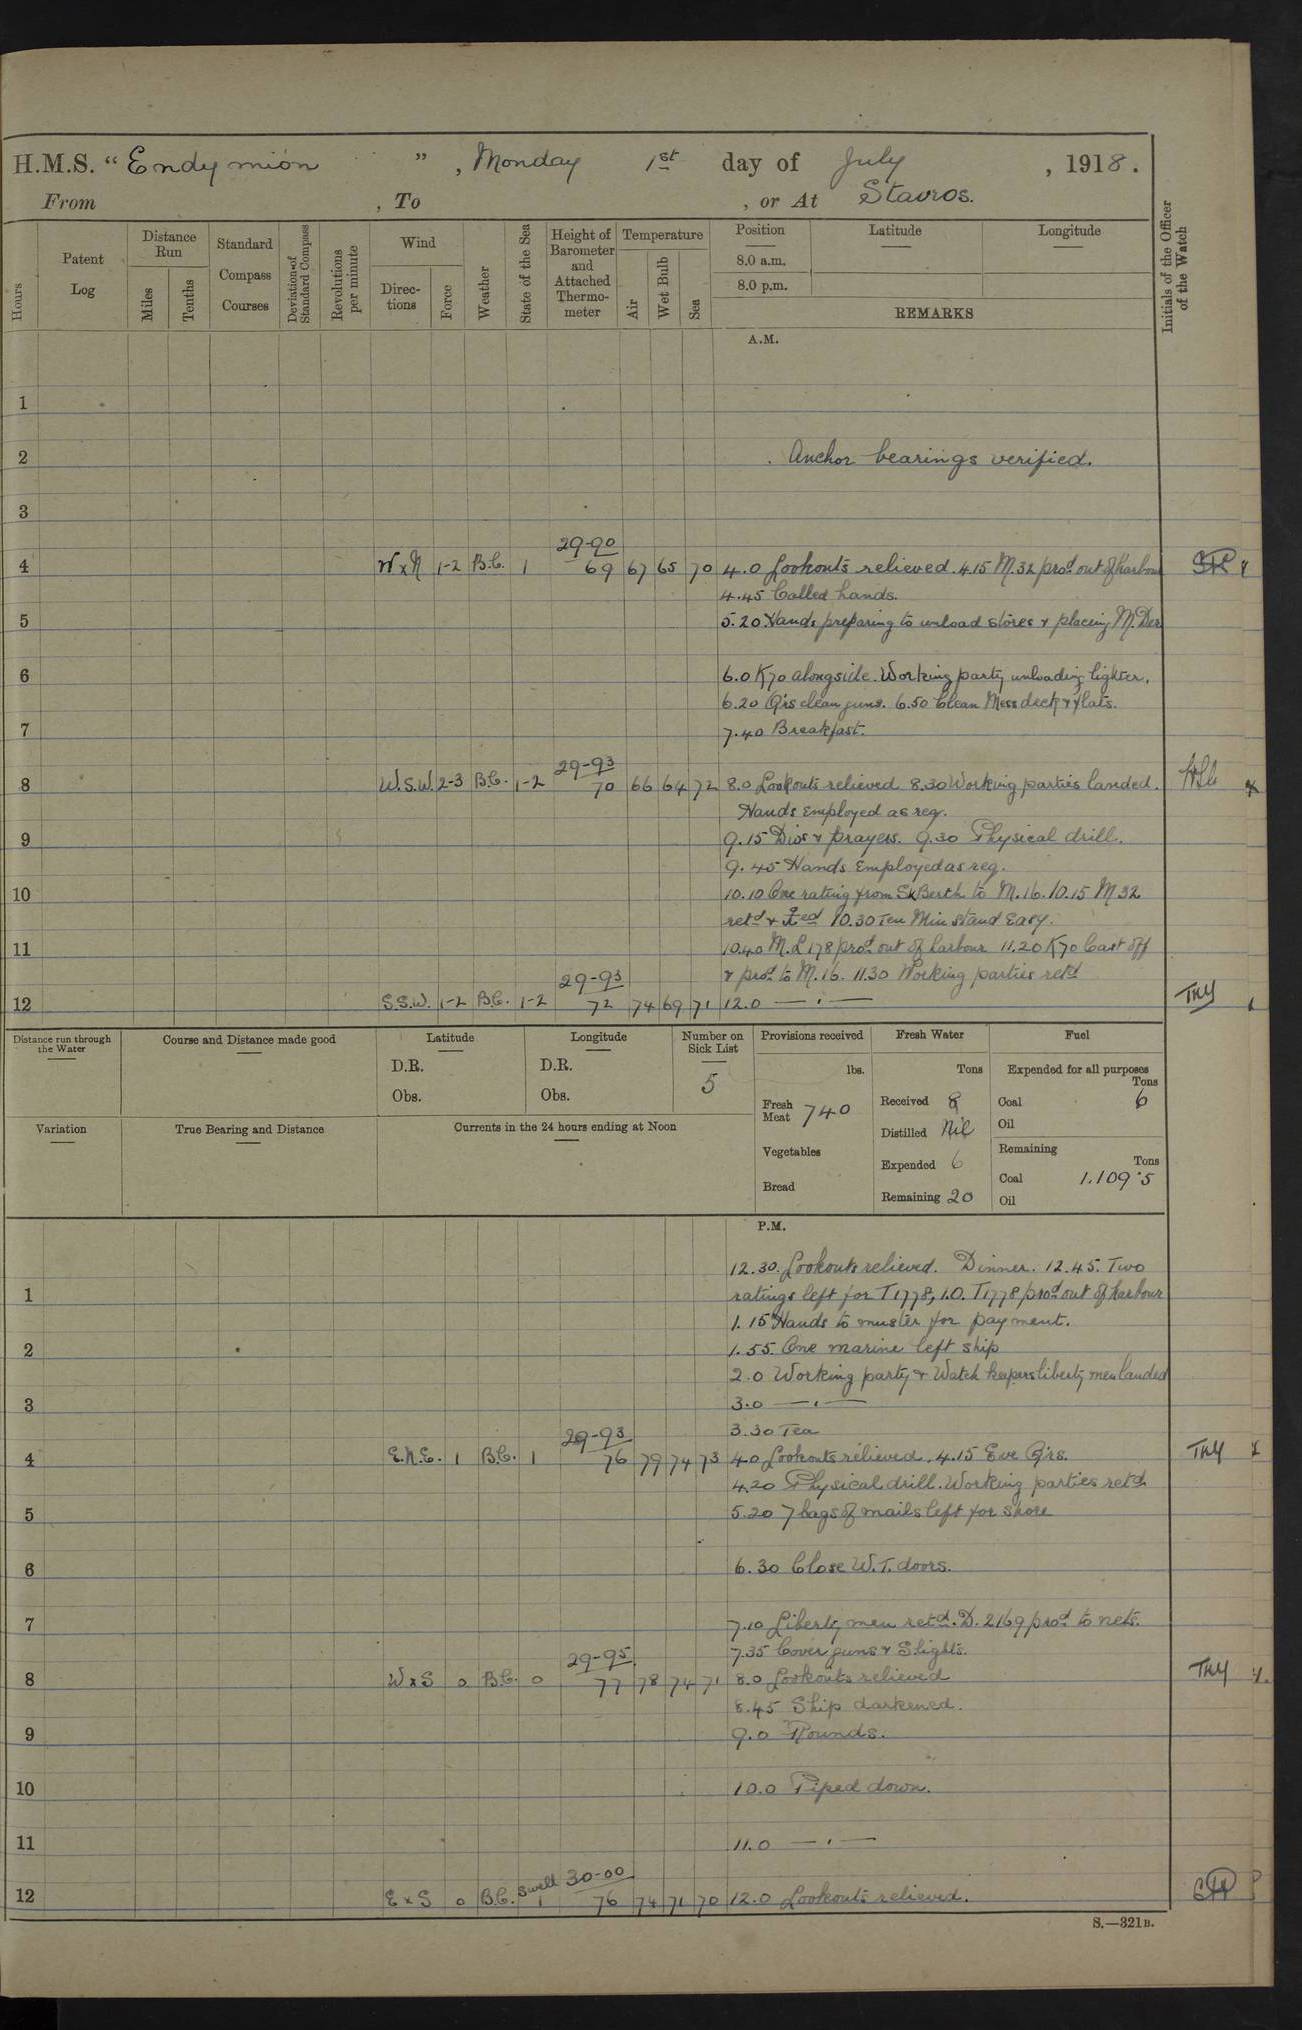 H.M.S. “ Endymion ” , Monday 1st day of July , 1918 .
From , To , or At Stavros.
Hours
Patent Log
Distance Run
Miles
Tenths
Standard Compass Courses
Deviation of Standard Compass
Revolutions per minute
Wind
Directions
Force
Weather
State of the Sea
Height of Barometer and Attached Thermometer
Temperature
Air
Wet Bulb
Sea
Position
8.0 a.m.
8.0 p.m.
Latitude
Longitude
REMARKS
Initials of the Officer of the Watch
A.M.
1
2 Anchor bearings verified.
3
29-90
4 W x N 1-2 B.C. 1 69 67 65 70 4.0 Lookouts relieved. 4.15 M.32 procd. out of harbour
4.45 Called hands.
5 5.20 Hands preparing to unload stores & placing M. Der
6 6.0 K70 alongside. Working party unloading lighter.
6.20 Qrs clean guns. 6.50 Clean Mess deck & flats.
7 7.40 Breakfast.
29-93
8 W.S.W. 2-3 B.C. 1-2 70 66 64 72 8.0 Lookouts relieved 8.30 Working parties landed.
Hands Employed as req.
9 9.15 Divs & prayers. 9.30 Physical drill.
9.45 Hands Employed as req.
10 10.10 One rating from Sk Berth to M.16. 10.15 M 32
retd & 10.30 Ten Min stand Easy.
11 10.40 M.L 178 procd. out of harbour 11.20 K70 Cast off
29-93 & procd. to M.16. 11.30 Working parties retd
12 S.S.W. 1-2 B.C. 1-2 72 74 69 71 12.0 — " — TKY
Distance run through the Water
Course and Distance made good
Latitude
D.R.
Obs.
Longitude
D.R.
Obs.
Number on Sick List
5
Provisions received
lbs.
Fresh Meat 740
Vegetables
Bread
Fresh Water
Tons
Received 8
Distilled Nil
Expended 6
Remaining 20
Fuel
Expended for all purposes
Tons
Coal 6
Oil
Remaining
Tons
Coal 1.109.5
Oil
Variation
True Bearing and Distance
Currents in the 24 hours ending at Noon
P.M.
12.30. Lookouts relieved. Dinner. 12.45. Two
1 ratings left for T1778, 1.0. T1778 procd. out of harbour
1.15 Hands to muster for payment.
2 1.55. One marine left ship
2.0 Working party & Watch keepers liberty men landed
3 3.0 — " —
29-93 3.30 Tea
4 E.N.E. 1 B.C. 1 76 79 74 73 4.0 Lookouts relieved. 4.15 Eve Qrs. TKY
4.20 Physical drill. Working parties retd.
5 5.20 7 bags of mails left for shore
6 6.30 Close W.T. doors.
7 7.10 Liberty men retd. D.2169 procd to nets.
29-95 7.35 Cover guns & S lights.
8 W x S 0 B.C. 0 77 78 74 71 8.0 Lookouts relieved TKY
8.45 Ship darkened.
9 9.0 Rounds.
10 10.0 Piped down.
11 11.0 — " —
Swell 30-00
12 E x S 0 B.C. 1 76 74 71 70 12.0 Lookouts relieved.
S.—321B.